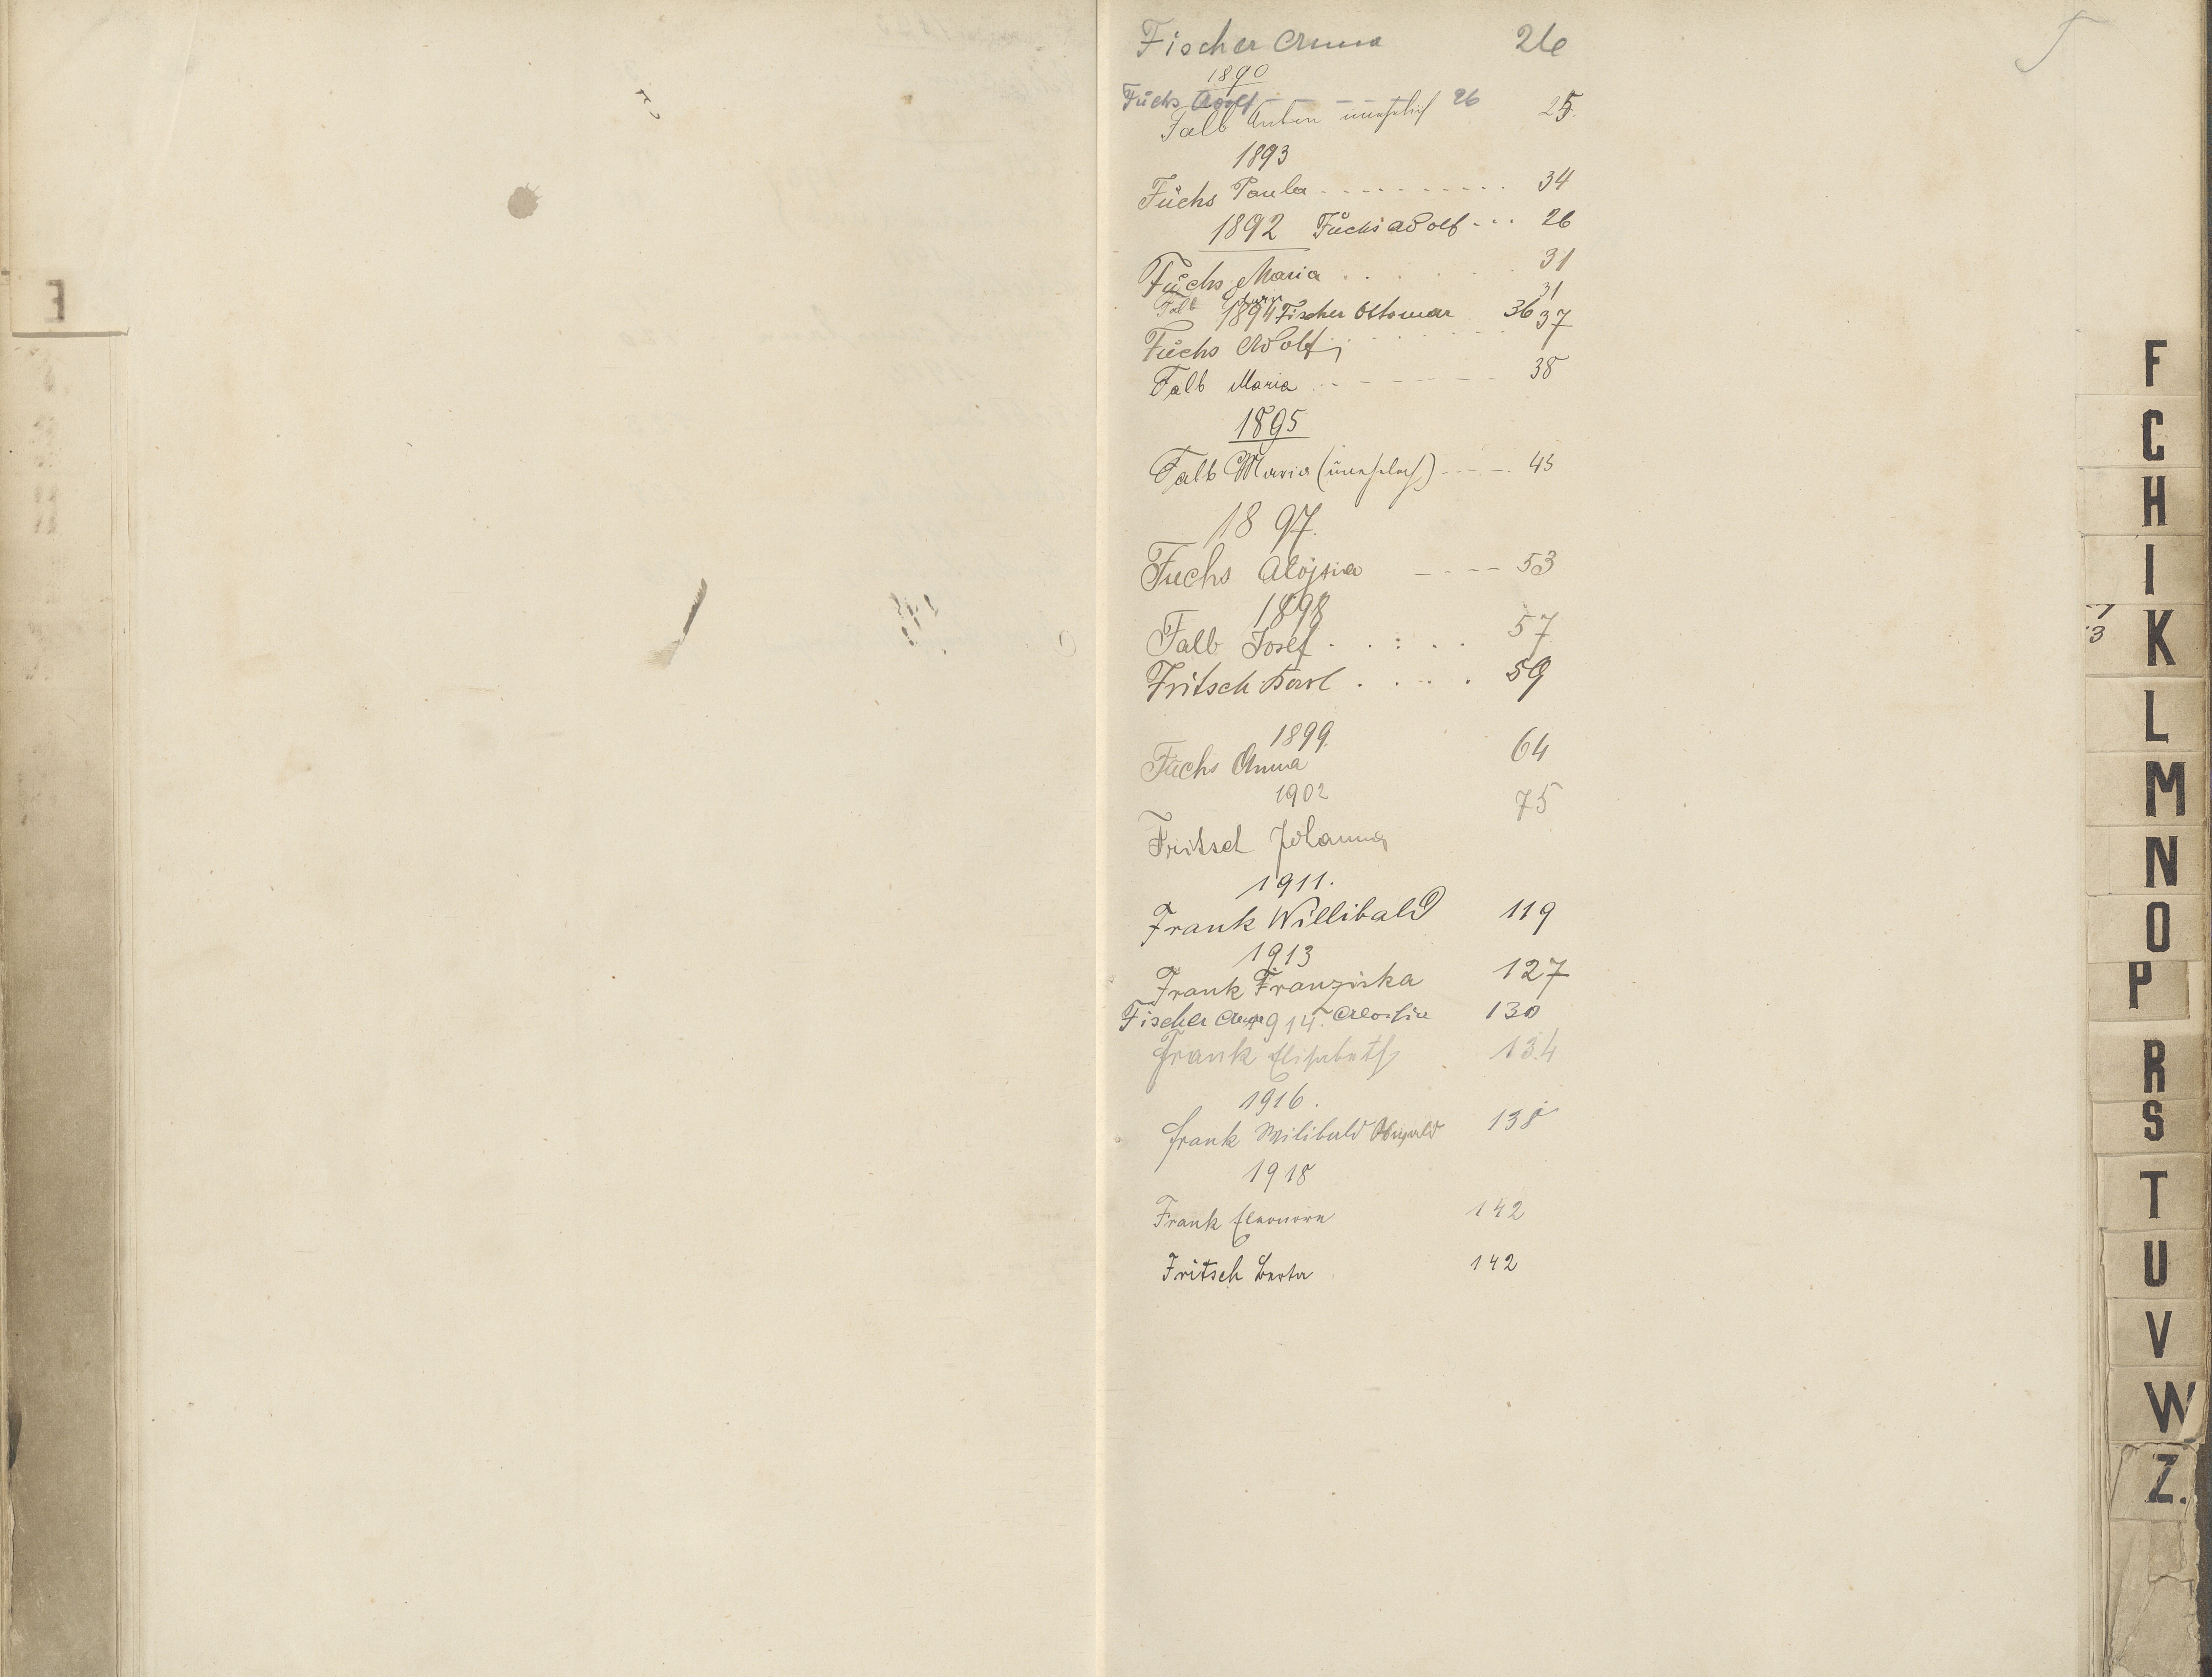 Fischer Anna 26
1890
Fuchs Adolf - - - - 26
Falb Anton unehelich 25.
1893
Fuchs Paula - - - - - - - - - - 34
1892 Fuchs Adolf - - . 26
Fuchs Maria . . . . . . 31
Falb 31
1894 Fischer Ottomar 36
Fuchs Adolf . . . . . . 37
Falb Maria - - - - - - - 38
1895
Falb Maria (unehelich) - - - - 45
1897.
Fuchs Aloisia - - - - 53
1898
Falb Josef . . : . . 57
Fritsch Karl . . . . 59
1899.
Fuchs Anna 64
1902
75
Fritsch Johanna
1911.
Frank Willibald 119
1913
Frank Franziska 127
Fischer 1914. Aloisia 130
Frank Elisabeth 134
1916.
Frank Wilibald 138
1918
Frank Eleonora 142
Fritsch Berta 142
E
F
C
H
I
K
3
L
M
N
O
P
R
S
T
U
V
W
Z.